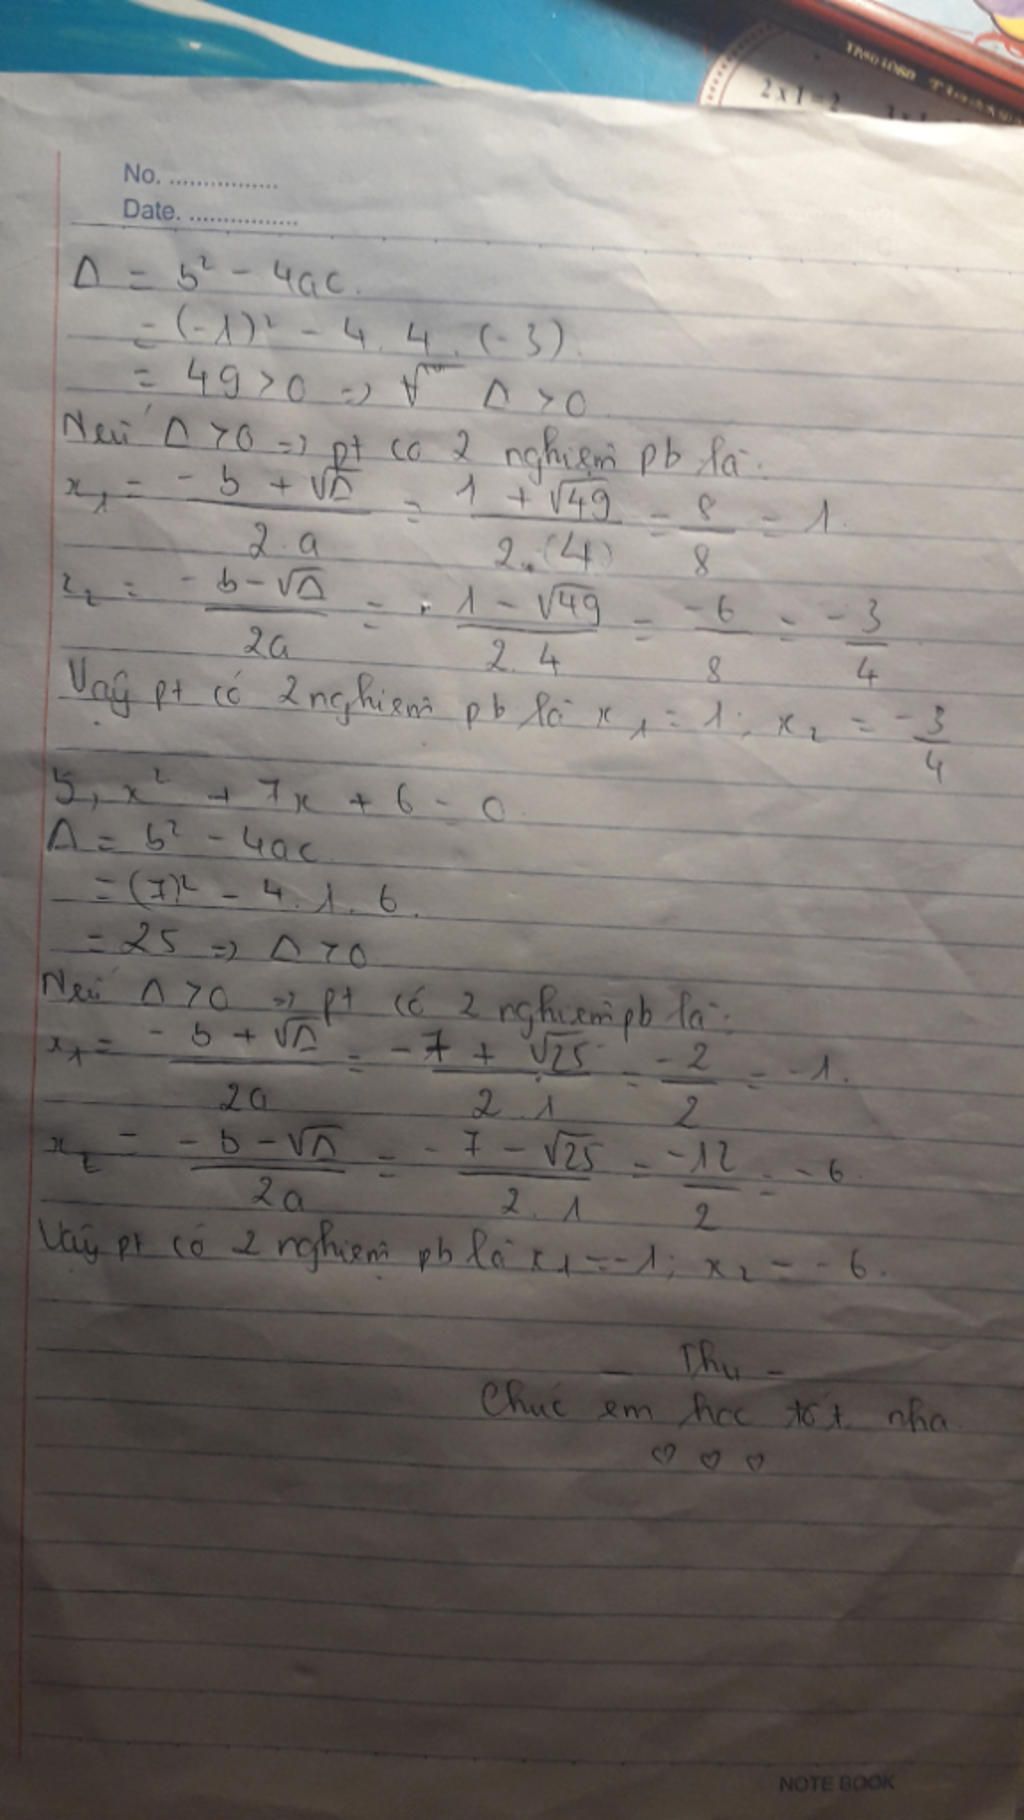 2 x 1 = 2
No. ................
Date. ................
Δ = b² - 4ac.
= (-1)² - 4. 4. (-3).
= 49 > 0 => √ Δ > 0
Nếu Δ > 0 => pt có 2 nghiệm pb là:
x₁ = -b + √Δ / 2.a = 1 + √49 / 2.(4) = 8/8 = 1.
x₂ = -b - √Δ / 2a = 1 - √49 / 2.4 = -6/8 = -3/4
Vậy pt có 2 nghiệm pb là x₁ = 1; x₂ = -3/4
5, x² + 7x + 6 = 0.
Δ = b² - 4ac
= (7)² - 4. 1. 6.
= 25 => Δ > 0
Nếu Δ > 0 => pt có 2 nghiệm pb là:
x₁ = -b + √Δ / 2a = -7 + √25 / 2.1 = -2/2 = -1.
x₂ = -b - √Δ / 2a = -7 - √25 / 2.1 = -12/2 = -6.
Vậy pt có 2 nghiệm pb là x₁ = -1; x₂ = -6.
- Thu -
Chúc em học tốt nha
♡ ♡ ♡
NOTE BOOK